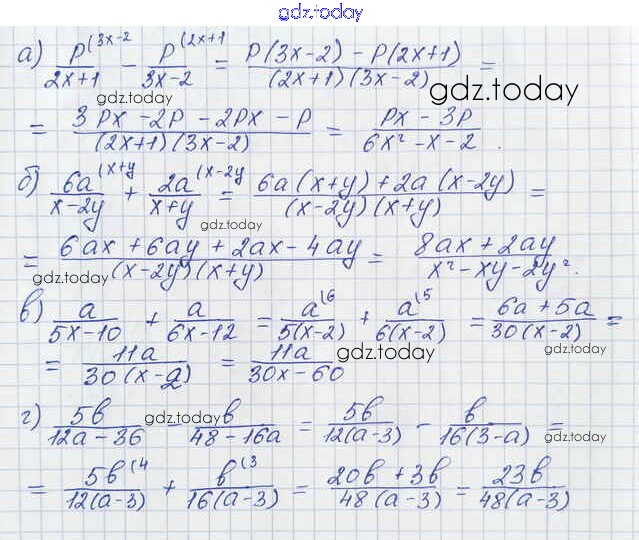 gdz.today
а) p^(3x-2 / 2x+1 - p^(2x+1 / 3x-2 = p(3x-2) - p(2x+1) / (2x+1)(3x-2) =
gdz.today gdz.today
= 3px - 2p - 2px - p / (2x+1)(3x-2) = px - 3p / 6x² - x - 2 .
б) 6a^(x+y / x-2y + 2a^(x-2y / x+y = 6a(x+y) + 2a(x-2y) / (x-2y)(x+y) =
gdz.today
= 6ax + 6ay + 2ax - 4ay / (x-2y)(x+y) = 8ax + 2ay / x² - xy - 2y² .
gdz.today gdz.today
в) a / 5x-10 + a / 6x-12 = a^(6 / 5(x-2) + a^(5 / 6(x-2) = 6a + 5a / 30(x-2) =
= 11a / 30(x-2) = 11a / 30x-60
gdz.today gdz.today
г) 5b / 12a-36 - b / 48-16a = 5b / 12(a-3) - b / 16(3-a) =
gdz.today gdz.today
= 5b^(4 / 12(a-3) + b^(3 / 16(a-3) = 20b + 3b / 48(a-3) = 23b / 48(a-3)